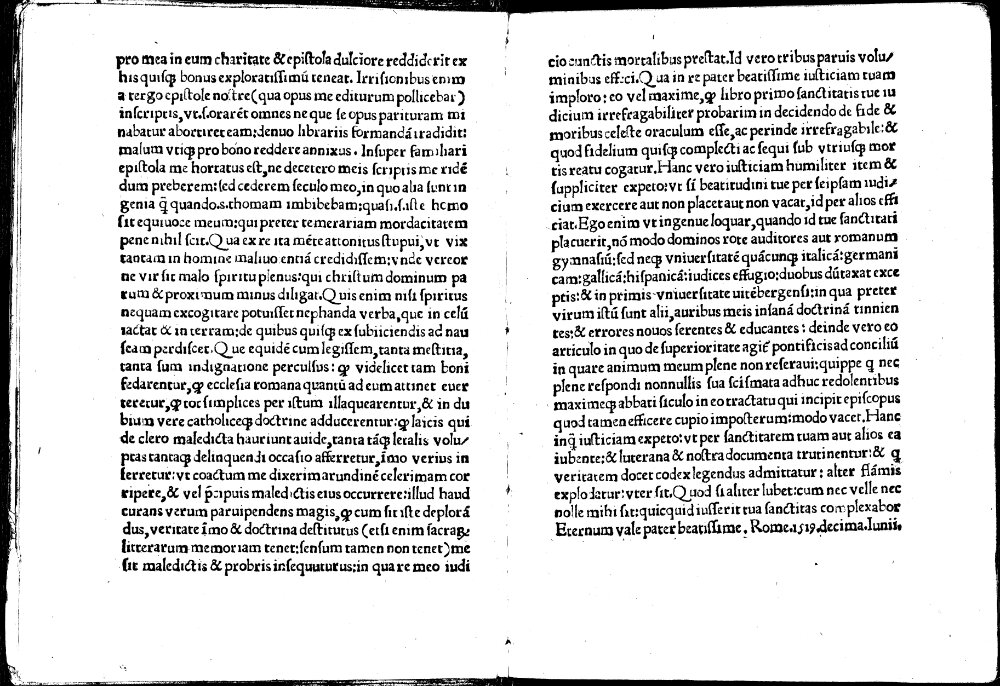 pro mea in eum charitate & epistola dulciore reddiderit ex
his quisq̃ bonus exploratissimũ teneat. Irrisionibus enim
a tergo epistole nostre (qua opus me editurum pollicebar)
inscriptis, vt.sorarẽt omnes ne que se opus parituram mi
nabatur abortiret eam: denuo librariis formandã tradidit:
malum vtiq̃ pro bono reddere annixus. Insuper familiari
epistola me hortatus est, ne decetero meis scriptis me ridẽ
dum preberem: sed cederem seculo meo, in quo alia sunt in
genia q̃ quando.s.thomam imbibebam: quasi.s.iste homo
sit equiuoce meum: qui preter temerariam mordacitatem
pene nihil scit. Qua ex re ita mẽte attonitus stupui, vt vix
tantam in homine maliuo entiã credidissem: vnde vereor
ne vir sit malo spiritu plenus: qui christum dominum pa
rum & proximum minus diligat. Quis enim nisi spiritus
nequam excogitare potuisset nephanda verba, que in celũ
iactat & in terram: de quibus quisq̃ ex subiiciendis ad nau
seam perdiscet. Que equidẽ cum legissem, tanta mestitia,
tanta sum indignatione perculsus: ꝙ videlicet tam boni
fedarentur, ꝙ ecclesia romana quantũ ad eum attinet euer
teretur, ꝙ tot simplices per istum illaquearentur, & in du
bium vere catholiceq̃ doctrine adducerentur: ꝙ laicis qui
de clero maledicta hauriunt auide, tanta tãq̃ letalis volu⸗
ptas tantaq̃ delinquendi occasio afferretur, ĩmo verius in
ferretur: vt coactum me dixerim arundinẽ celerimam cor
ripere, & vel p̃cipuis maledictis eius occurrere: illud haud
curans verum paruipendens magis, ꝙ cum sit iste deplorã
dus, veritate ĩmo & doctrina destitutus (etsi enim sacraꝝ
litterarum memoriam tenet: sensum tamen non tenet) me
sit maledictis & probris insequuturus: in qua re meo iudi
cio cunctis mortalibus prestat. Id vero tribus paruis volu⸗
minibus effeci. Qua in re pater beatissime iusticiam tuam
imploro: eo vel maxime, ꝙ libro primo sanctitatis tue iu
dicium irrefragabiliter probarim in decidendo de fide &
moribus celeste oraculum esse, ac perinde irrefragabile: &
quod fidelium quisq̃ complecti ac sequi sub vtriusq̃ mor
tis reatu cogatur. Hanc vero iusticiam humiliter item &
suppliciter expeto: vt si beatitudini tue per seipsam iudi⸗
cium exercere aut non placet aut non vacat, id per alios effi
ciat. Ego enim vt ingenue loquar, quando id tue sanctitati
placuerit, nõ modo dominos rote auditores aut romanum
gymnasiũ: sed neq̃ vniuersitatẽ quãcunq̃ italicã: germani
cam: gallicã: hispanicã: iudices effugio: duobus dũtaxat exce
ptis: & in primis vniuersitate uitẽbergensi: in qua preter
virum istũ sunt alii, auribus meis insanã doctrinã tinnien
tes: & errores nouos serentes & educantes: deinde vero eo
articulo in quo de superioritate agit̃ pontificis ad conciliũ
in quare animum meum plene non reseraui: quippe q nec
plene respondi nonnullis sua scismata adhuc redolentibus
maximeq̃ abbati siculo in eo tractatu qui incipit episcopus
quod tamen efficere cupio imposterum: modo vacet. Hanc
inq̃ iusticiam expeto: vt per sanctitatem tuam aut alios ea
iubente: & luterana & nostra documenta trutinentur: & q
veritatem docet codex legendus admittatur: alter flãmis
explodatur: vter sit. Quod si aliter lubet: cum nec velle nec
nolle mihi sit: quicquid iusserit tua sanctitas complexabor
Eternum vale pater beatissime. Rome.1519.decima.Iunii.